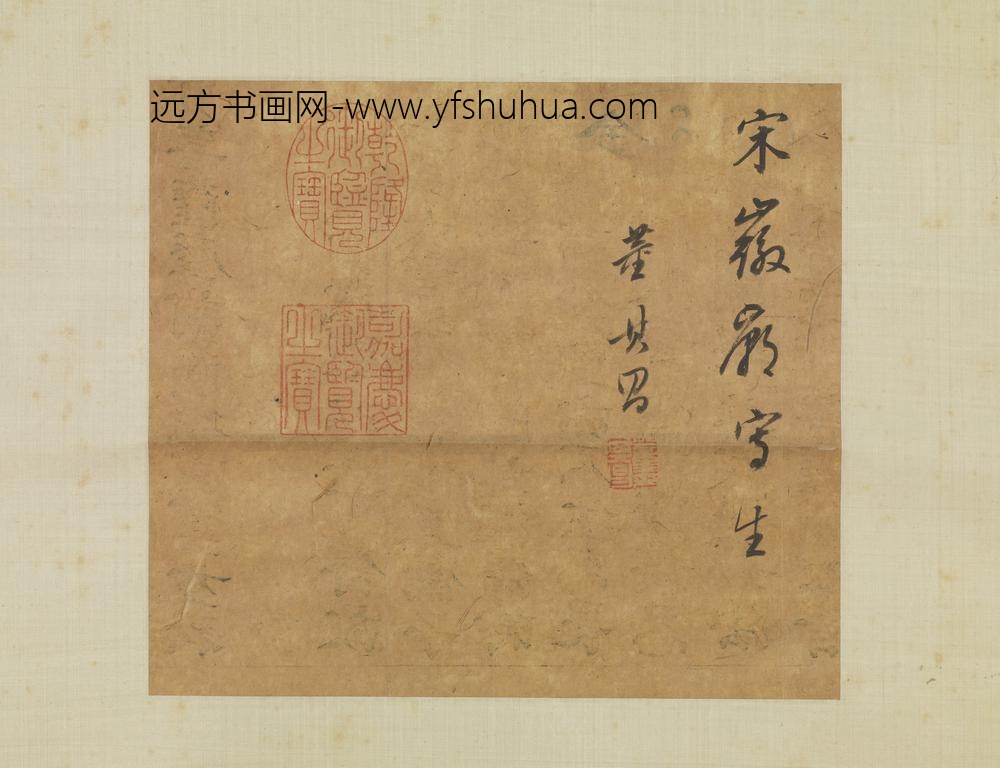 远方书画网-www.yfshuhua.com
宋徽廟寫生
董其昌
乾隆御覽之寶
嘉慶御覽之寶